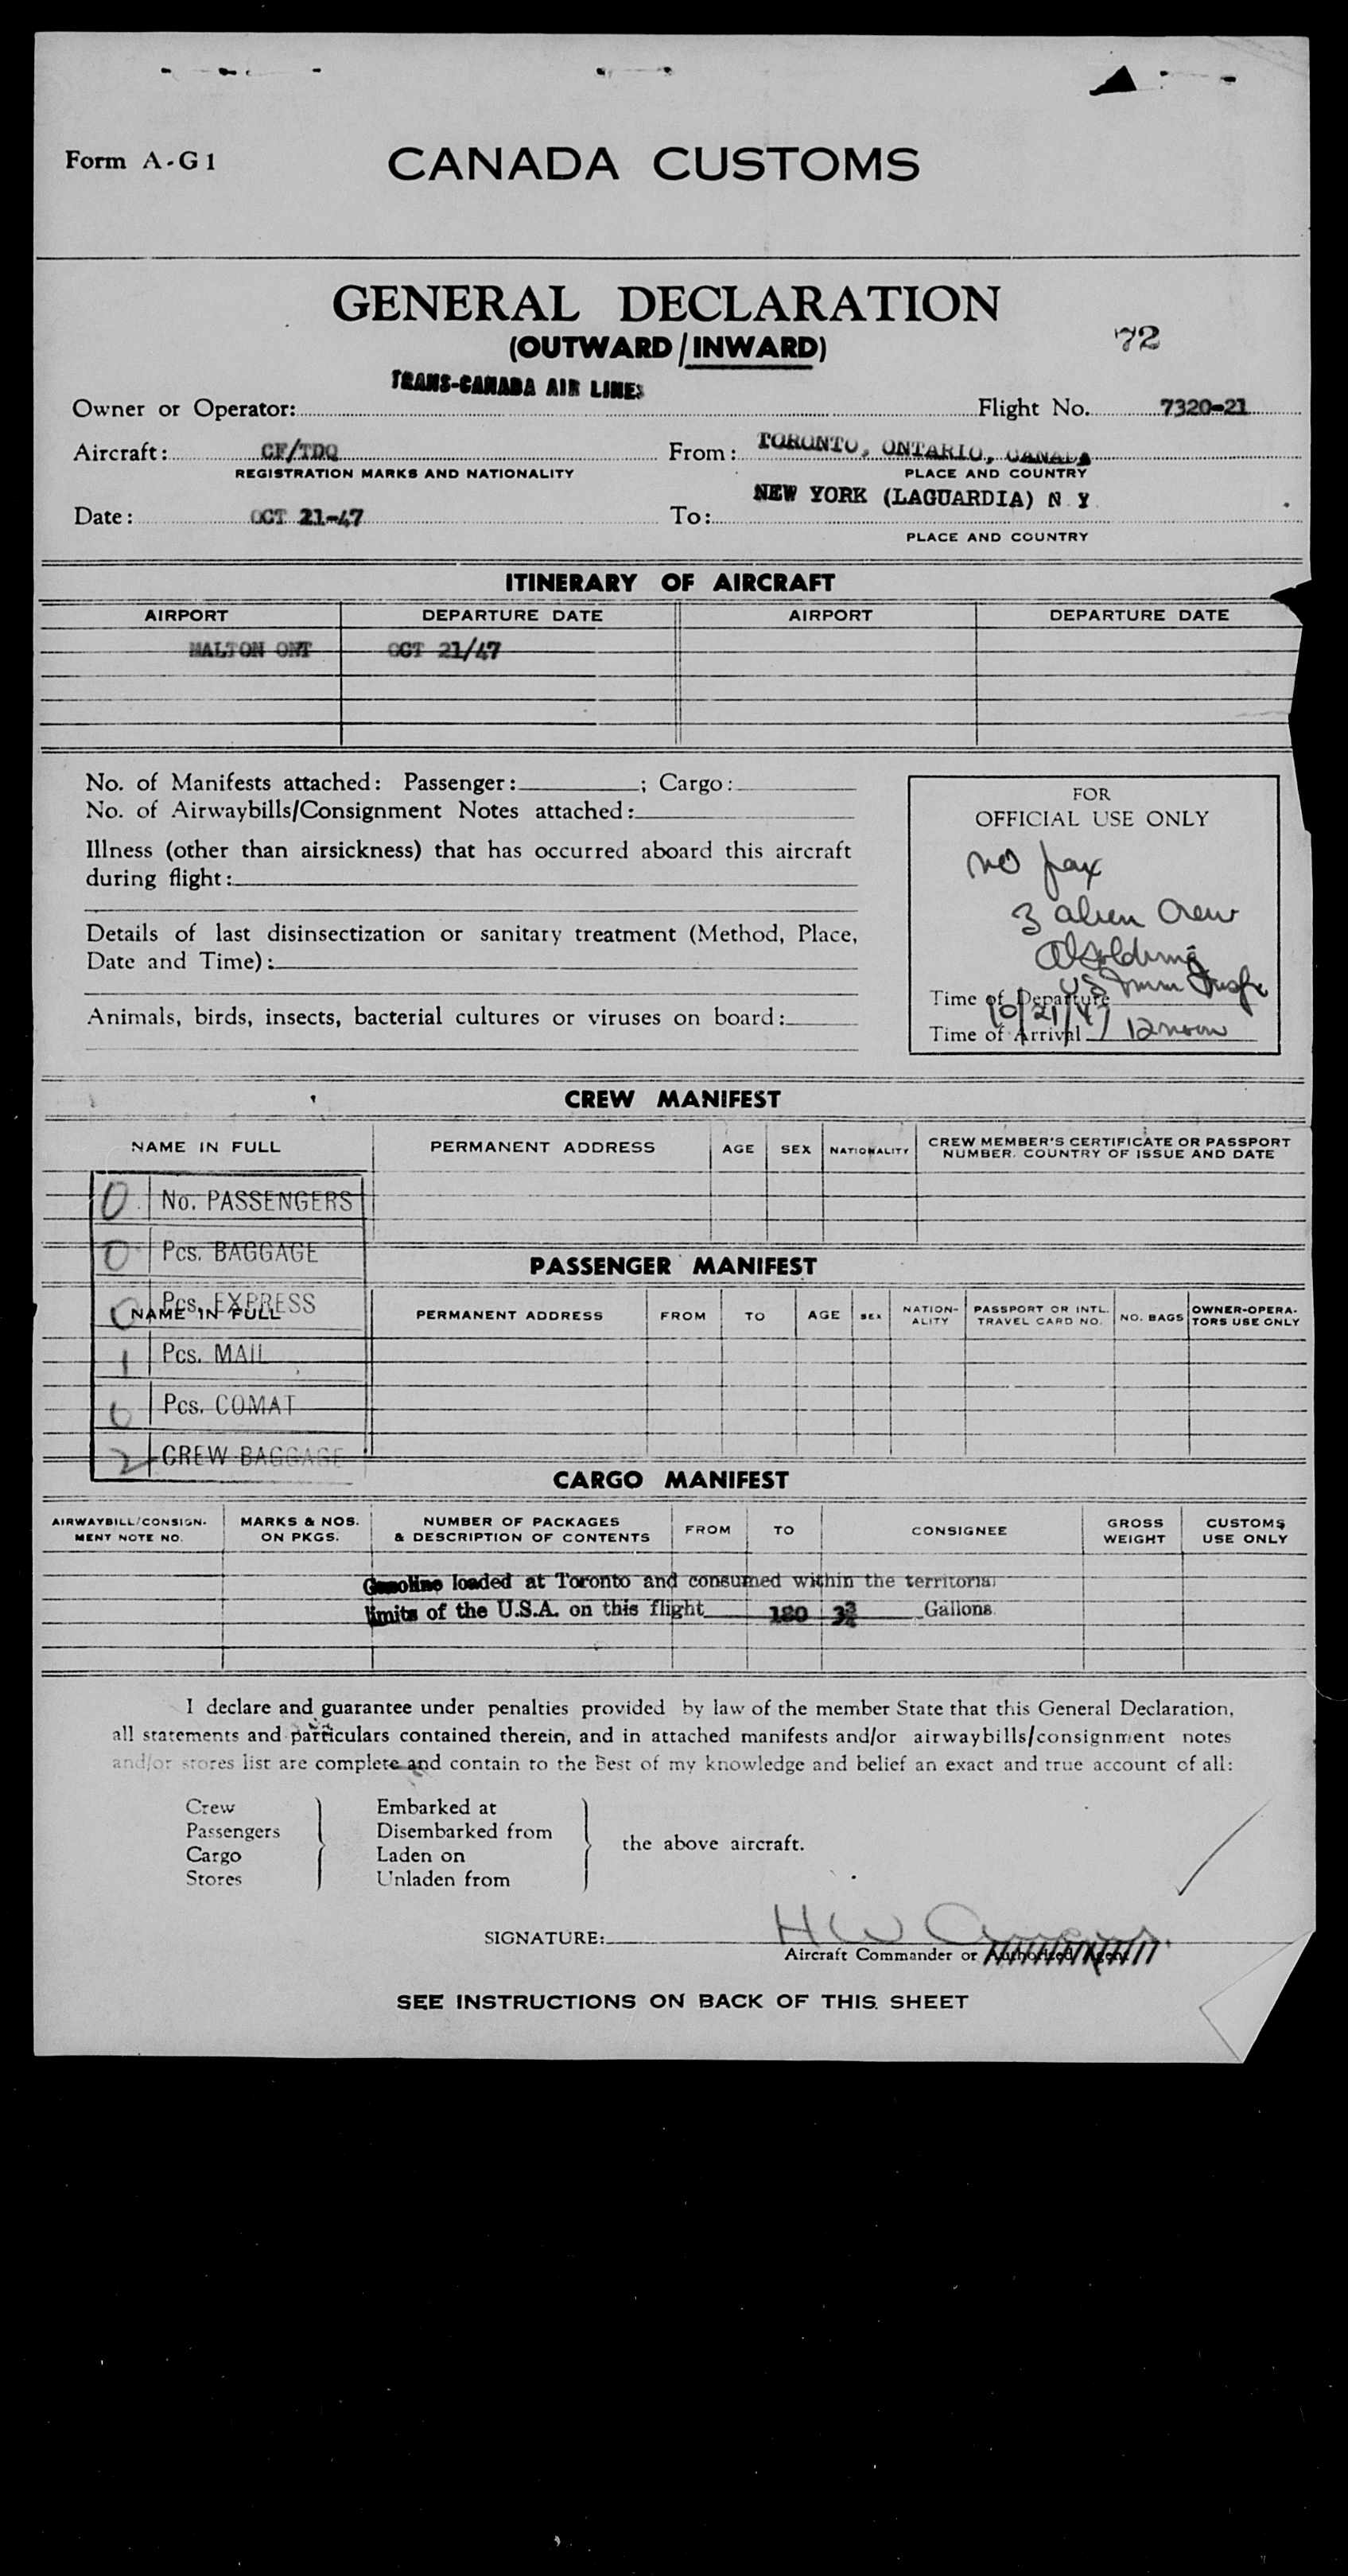 Form A-G1
CANADA CUSTOMS
GENERAL DECLARATION
(OUTWARD/INWARD)
72
TRANS-CANADA AIR LINES
Owner or Operator: Flight No. 7320-21
Aircraft: CF/TDQ From: TORONTO, ONTARIO, CANADA
REGISTRATION MARKS AND NATIONALITY PLACE AND COUNTRY
NEW YORK (LAGUARDIA) N Y
Date: OCT 21-47 To:
PLACE AND COUNTRY
ITINERARY OF AIRCRAFT
AIRPORT DEPARTURE DATE AIRPORT DEPARTURE DATE
MALTON ONT OCT 21/47
No. of Manifests attached: Passenger: ; Cargo:
No. of Airwaybills/Consignment Notes attached:
Illness (other than airsickness) that has occurred aboard this aircraft
during flight:
Details of last disinsectization or sanitary treatment (Method, Place,
Date and Time):
Animals, birds, insects, bacterial cultures or viruses on board:
FOR
OFFICIAL USE ONLY
no pax
3 alien Crew
US Imm Inspr
Time of Departure
10/21/47 12 noon
Time of Arrival
CREW MANIFEST
NAME IN FULL PERMANENT ADDRESS AGE SEX NATIONALITY CREW MEMBER'S CERTIFICATE OR PASSPORT
NUMBER. COUNTRY OF ISSUE AND DATE
0 No. PASSENGERS
0 Pcs. BAGGAGE
PASSENGER MANIFEST
0 Pcs. EXPRESS
NAME IN FULL PERMANENT ADDRESS FROM TO AGE SEX NATION-
ALITY PASSPORT OR INTL.
TRAVEL CARD NO. NO. BAGS OWNER-OPERA-
TORS USE ONLY
1 Pcs. MAIL
0 Pcs. COMAT
2 CREW BAGGAGE
CARGO MANIFEST
AIRWAYBILL/CONSIGN-
MENT NOTE NO. MARKS & NOS.
ON PKGS. NUMBER OF PACKAGES
& DESCRIPTION OF CONTENTS FROM TO CONSIGNEE GROSS
WEIGHT CUSTOMS
USE ONLY
Gasoline loaded at Toronto and consumed within the territorial
limits of the U.S.A. on this flight 180 Gallons
I declare and guarantee under penalties provided by law of the member State that this General Declaration,
all statements and particulars contained therein, and in attached manifests and/or airwaybills/consignment notes
and/or stores list are complete and contain to the best of my knowledge and belief an exact and true account of all:
Crew Embarked at
Passengers Disembarked from
the above aircraft.
Cargo Laden on
Stores Unladen from
SIGNATURE: H W
Aircraft Commander or Authorized Agent
SEE INSTRUCTIONS ON BACK OF THIS SHEET